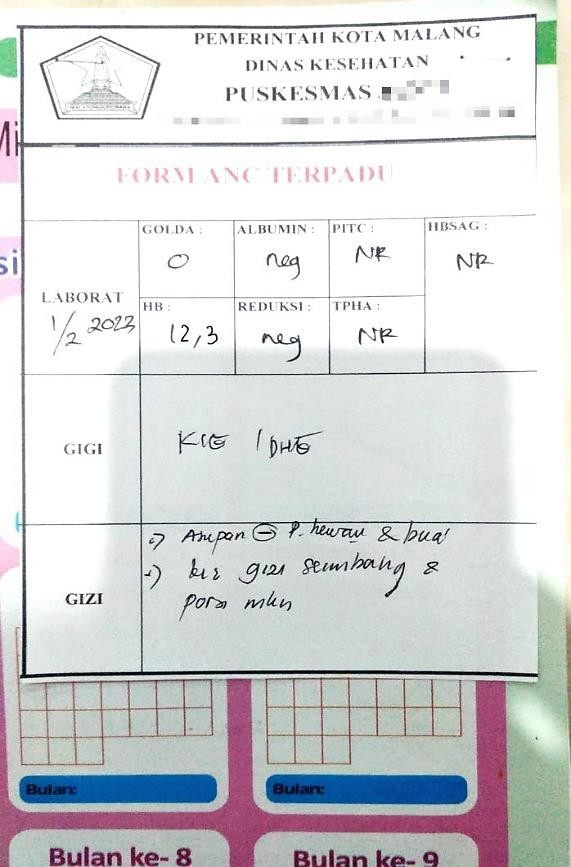 PEMERINTAH KOTA MALANG
DINAS KESEHATAN
PUSKESMAS
FORM ANC TERPADU
LABORAT
1/2 2023
GOLDA :
O
ALBUMIN :
neg
PITC :
NR
HBSAG :
NR
HB :
12,3
REDUKSI :
neg
TPHA :
NR
GIGI
KIE / DHE
GIZI
Asupan ⊖ P. hewan & bua
gizi seimbang &
porsi mkn
Bulan:
Bulan:
Bulan ke- 8
Bulan ke- 9